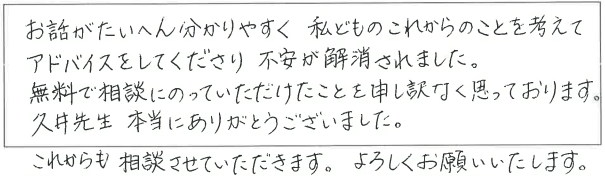 お話がたいへん分かりやすく 私どものこれからのことを考えて
アドバイスをしてくださり 不安が解消されました。
無料で相談にのっていただけたことを申し訳なく思っております。
久井先生 本当にありがとうございました。
これからも 相談させていただきます。 よろしくお願いいたします。